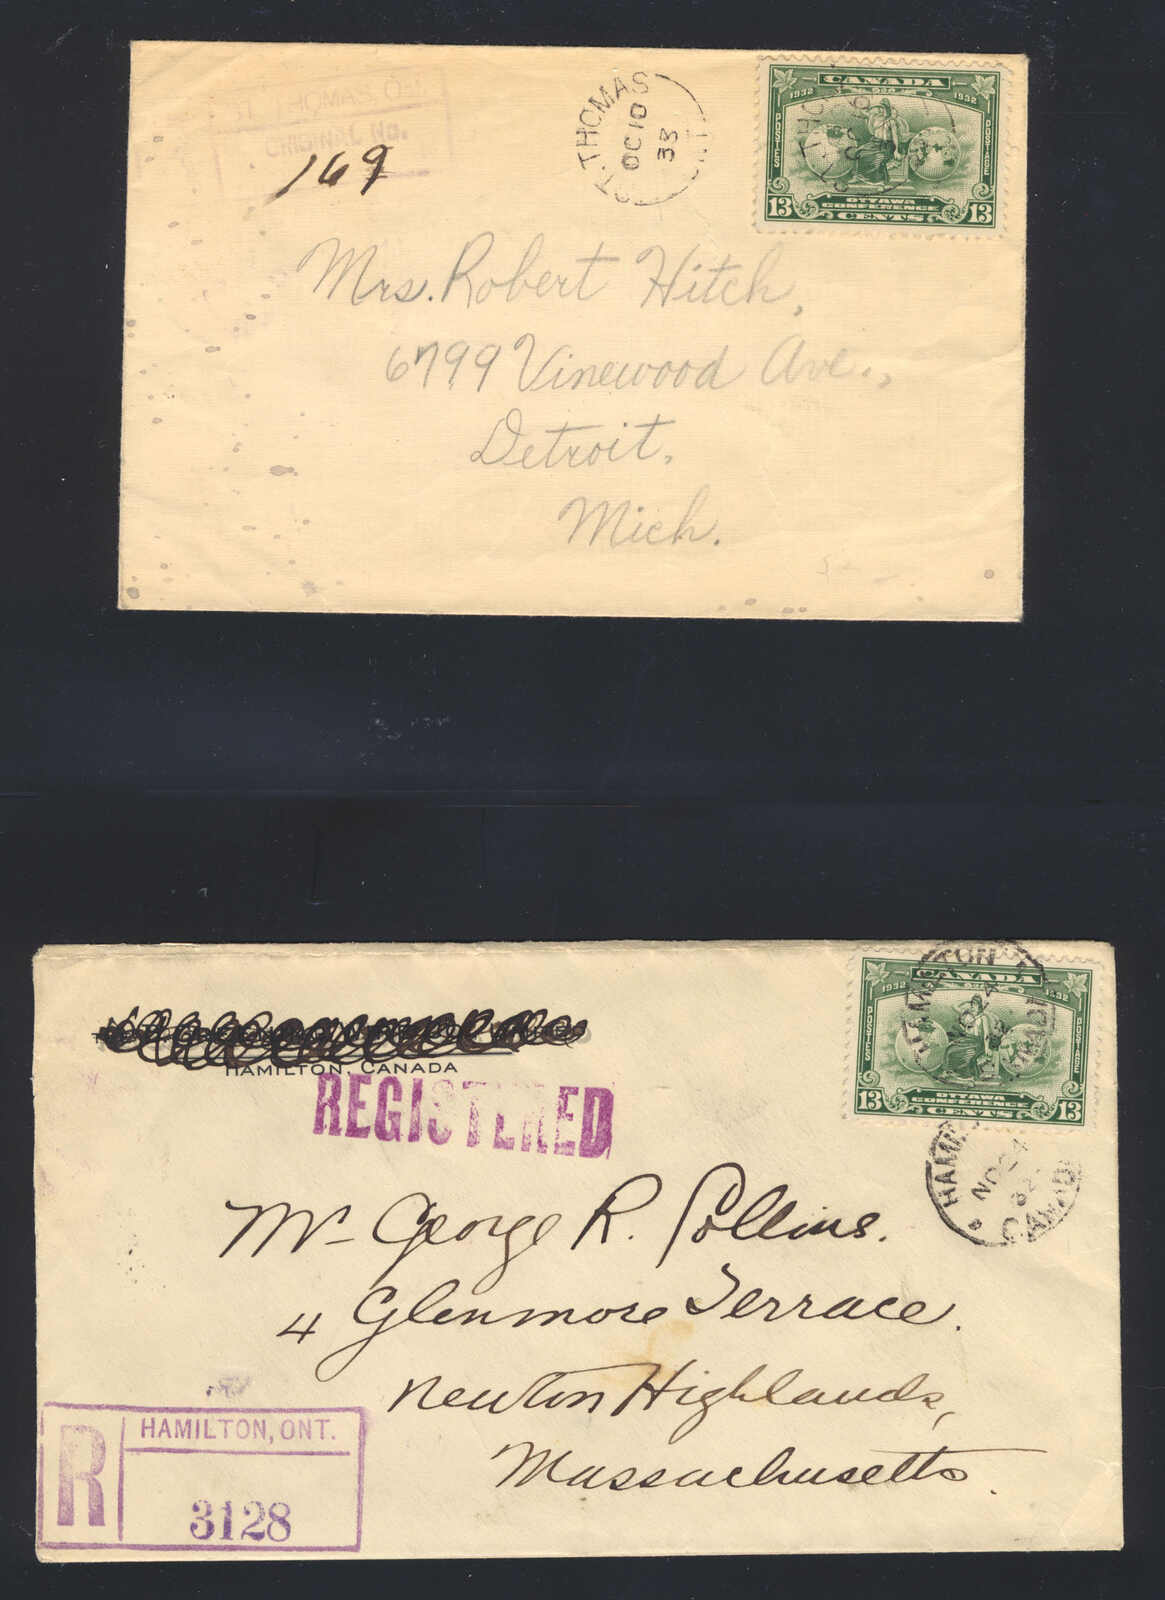 ST. THOMAS, Ont.
ORIGINAL No.
169
ST. THOMAS
OC 10
33
ONT.
CANADA
1932 1932
POSTES POSTAGE
OTTAWA
CONFERENCE
13 CENTS 13
Mrs. Robert Hitch,
6799 Vinewood Ave.,
Detroit,
Mich.
HAMILTON, CANADA
REGISTERED
CANADA
1932 1932
POSTES POSTAGE
OTTAWA
CONFERENCE
13 CENTS 13
HAMILTON
NO 24
32
CANADA
Mr George R. Collins.
4 Glenmore Terrace.
Newton Highlands,
Massachusetts.
R
HAMILTON, ONT.
3128